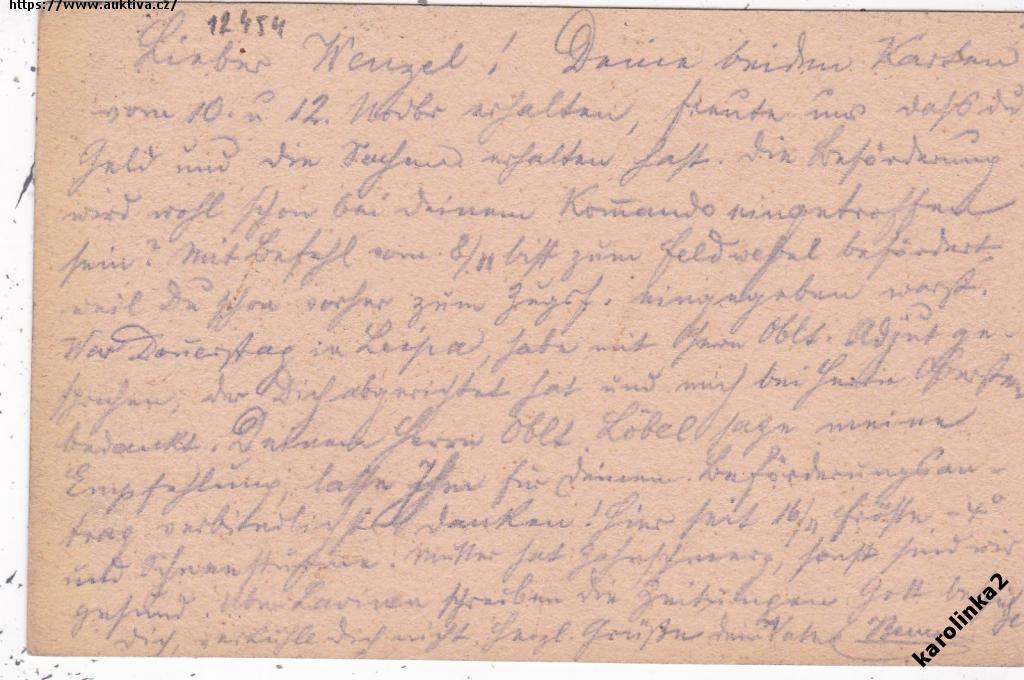 https://www.auktiva.cz/
12454
Lieber Wenzel! Deine beiden Karten
vom 10. u 12. Novbr erhalten, freute uns daß du
Geld und die Sachen erhalten hast. Die Beförderung
wird wohl schon bei deinem Kommando eingetroffen
sein? Mit Befehl vom 8/11 bist zum Feldwebel befördert,
weil Du schon vorher zum Zugsf. eingegeben warst.
War Donerstag in Leipa, habe mit Herrn Oblt. Adjut ge-
sprochen, der Dich abgerichtet hat und mich bei Herrn Obersten
bedankt. Deinem Herrn Oblt Löbel sage meine
Empfehlung, lasse Ihm für deinen Beförderungsan-
trag verbindlichst danken! Hier seit 16/11 Fröste, -4°
und Schneestürme. Mutter hat Zahnschmerz, sonst sind wir
gesund. Über schreiben die Zeitungen Gott
Dich, verkühle Dich nicht. Herzl. Grüße dein Vater
karolinka2